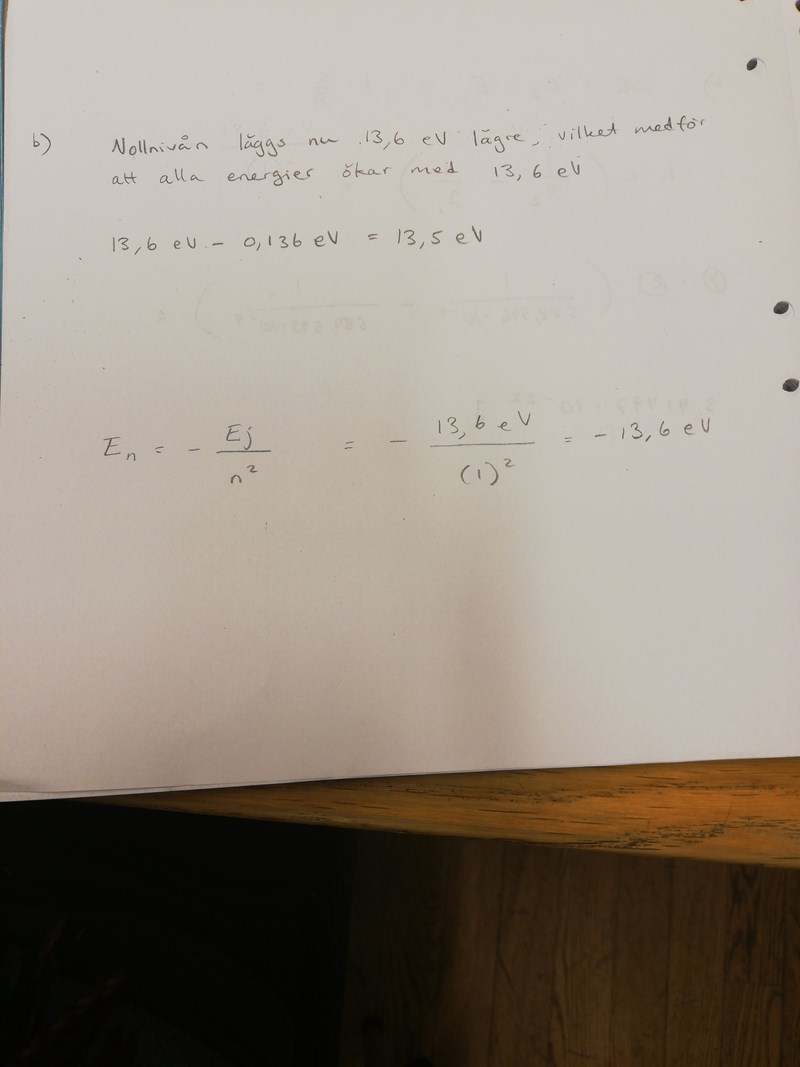 b) Nollnivån läggs nu 13,6 eV lägre, vilket medför
att alla energier ökar med 13,6 eV
13,6 eV - 0,136 eV = 13,5 eV
En = - Ej / n² = - 13,6 eV / (1)² = - 13,6 eV